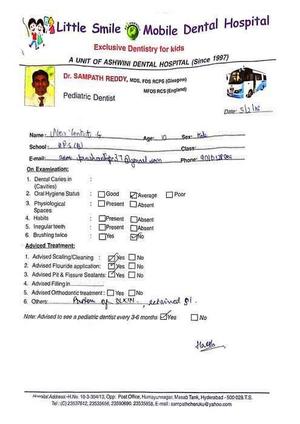 Little Smile Mobile Dental Hospital
Exclusive Dentistry for kids
A UNIT OF ASHWINI DENTAL HOSPITAL (Since 1997)
Dr. SAMPATH REDDY, MDS, FDS RCPS (Glasgow)
MFDS RCS (England)
Pediatric Dentist
Date:
Name: Age: Sex:
School: Class:
E-mail: Phone:
On Examination:
1. Dental Caries in :
(Cavities)
2. Oral Hygiene Status : Good Average Poor
3. Physiological : Present Absent
Spaces:
4. Habits : Present Absent
5. Irregular teeth : Present Absent
6. Brushing twice : Yes No
Adviced Treatment:
1. Advised Scaling/Cleaning : Yes No
2. Advised Flouride application: Yes No
3. Advised Pit & Fissure Sealants: Yes No
4. Advised Filling in
5. Advised Orthodontic treatment : Yes No
6. Others: retained
Note: Advised to see a pediatric dentist every 3-6 months Yes No
Hospital Address:-H.No. 10-3-304/13, Opp: Post Office, Humayunnagar, Masab Tank, Hyderabad - 500 028.T.S.
Tel: (O) 23537612, 23535656, 23590690, 23535658, E-mail: